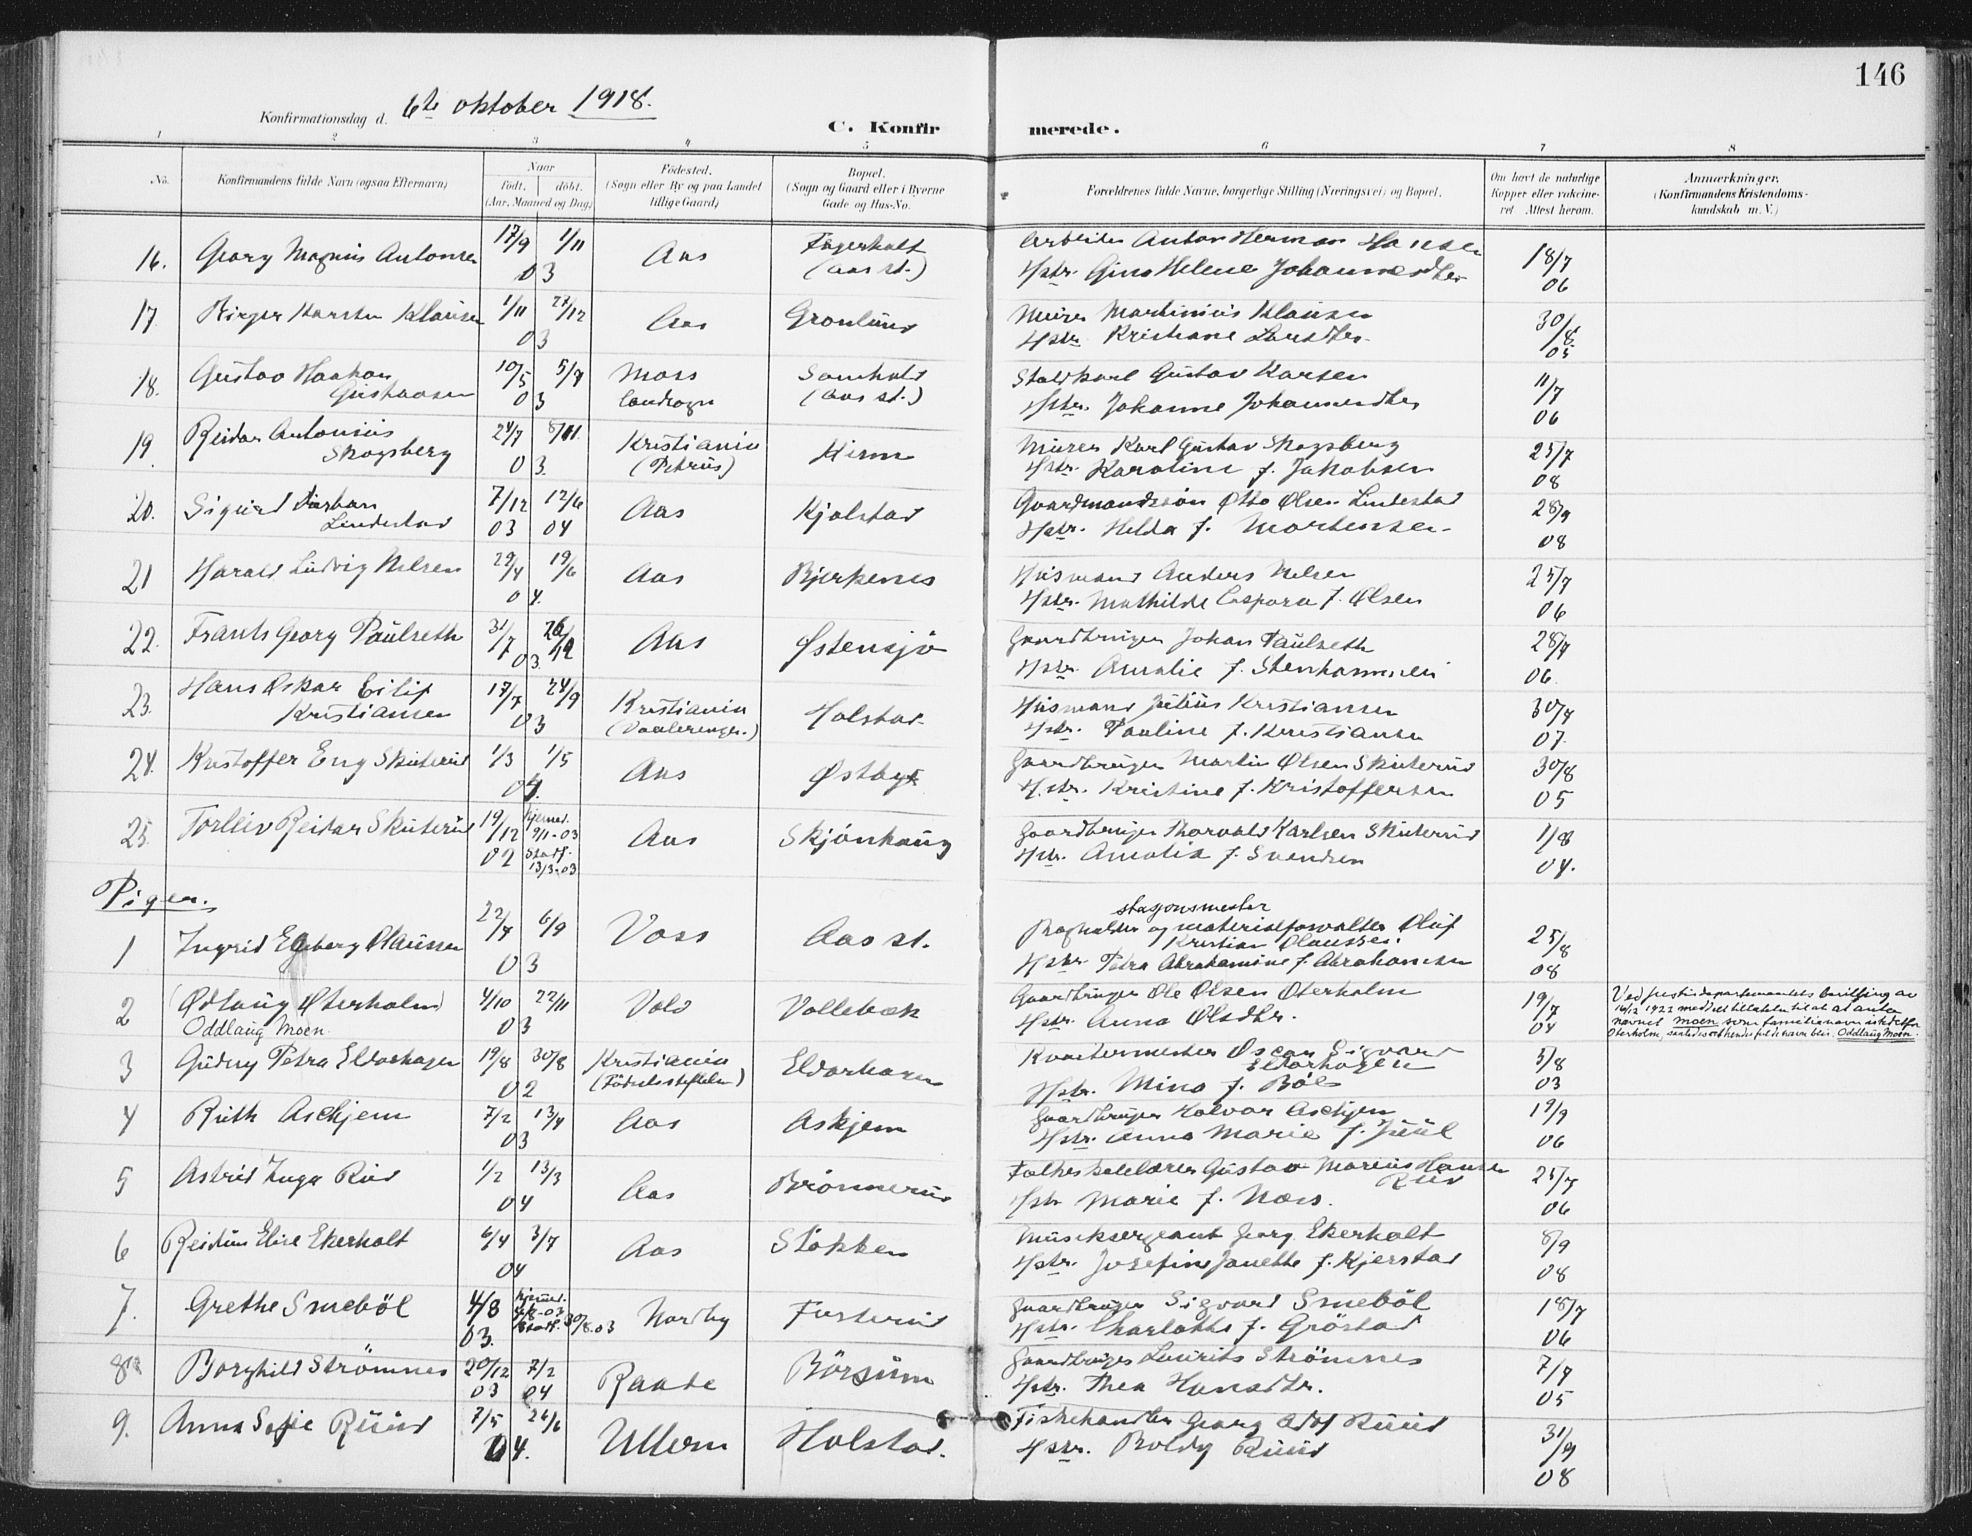 146
Konfirmationsdag d. 6te oktober 1918.
C. Konfirmerede.
1 2 3 4 5 6 7 8
No.
Konfirmandens fulde Navn (ogsaa Efternavn)
Naar
født. døbt.
(Aar, Maaned og Dag)
Födested.
(Sogn eller By og paa Landet
tillige Gaard)
Bopæl.
(Sogn og Gaard eller i Byerne
Gade og Hus-No.
Forældrenes fulde Navne, borgerlige Stilling (Næringsvei) og Bopæl.
Om havt de naturlige
Kopper eller vakcine-
ret Attest herom.
Anmærkninger.
(Konfirmandens Kristendoms-
kundskab m. V.)
16. Georg Magnus Antonsen 17/9 1/11 03 Aas Fagerholt (Aas st.)
Arbeider Anton Herman Hansen
Hstr. Gina Helene Johannesdtr. 18/7 06
17. Birger Karsten Klausen 1/11 27/12 03 Aas Gronlund
Murer Martinius Klausen
Hstr. Kristiane Larsdtr. 30/8 05
18. Gustav Haakon
Gustavsen 10/5 5/7 03 Moss
landsogn Solnhold (Aas st.)
Staldkarl Gustav Karsen
Hstr. Johanne Johannesdtr 11/7 06
19. Reidar Antonius
Skogsberg 24/7 8/11 03. Kristiania
(Petrus) Kirn
Murer Karl Gustav Skogsberg
Hstr. Karoline f. Jakobsen 25/7 08
20. Sigurd
Lindestad 7/12 03 12/6 04 Aas Kjølstad
Gaardmandssøn Otto Olsen Lindestad
Hstr. Helda f. Mortensen 28/9 08
21 Harald Ludvig Nilsen 29/4 19/6 04. Aas Bjerkenes
Husmand Anders Nilsen
Hstr. Mathilde Caspara f. Olsen 25/7 06
22. Frants Georg Paulseth 31/7 26/12 03. Aas Østensjø
Gaardbruger Johan Paulseth
Hstr. Amalie f. 28/7 06.
23. Hans Oskar Eilif
Kristiansen 17/7 24/9 03 Kristiania
(Vaalerengen.) Holstad.
Husmand Julius Kristiansen
Hstr. Pauline f. Kristiansen 30/7 07.
24. Kristoffer Eng Skuterud 1/3 1/5 04. Aas Østby
Gaardbruger Martin Olsen Skuterud
Hstr. Kristine f. Kristoffersen 30/8 05
25. Torleiv Reidar Skuterud 19/12 02 hjemmed. 9/1-03
Stadf. 13/3-03 Aas Skjønhaug
Gaardbruger Thorvald Karlsen Skuterud
Hstr. Amalia f. Svendsen 1/8 04.
Piger.
1 Ingrid Egeberg Olaussen 22/7 6/9 03 Voss Aas st.
stasjonsmester
og materialforvalter Oluf
Kristian Olaussen.
Hstr. Petra Abrahamine f. Abrahamsen 25/8 08
2 (Ødlaug Oterholm)
Oddlaug Moen 4/10 22/11 03 Vold Vollebæk
Gaardbruger Ole Olsen Oterholm
Hstr. Anna Olsdtr. 19/7 04
Ved justisdepartementets bevilling av
16/12 1922 meddelt tillatelse til at anta
navnet Moen som familienavn istedetfor
Oterholm, Oddlaug Moen.
3 Gudny Petra Eldorhagen 19/8 30/8 02 Kristiania
(Fødselsstiftelsen) Eldorhagen
Kvartermester Oscar Sigvard
Eldorhagen
Hstr. Mina f. Böe 5/8 03
4 Ruth Aschjem 7/2 13/4 03 Aas Askjem
Gaardbruger Halvor Aschjem
Hstr. Anna Marie f. Juul 19/9 06
5 Astrid Inga Rud 1/2 13/3 04 Aas Brönnerud
Folkeskolelærer Gustav Marius Hansen
Rud
Hstr Marie f. Næss. 25/7 06
6 Reidun Elise Ekerholt 6/4 3/7 04 Aas Stökken
Musiksergeant Georg Ekerholt
Hstr. Josefine Janette f. Kjerstad 8/9 08
7. Grethe Smeböl 4/8 03. hjemmed.
Stadf. 30/8.03 Nordby Fosterud
Gaardbruger Sigvard Smeböl
Hstr. Charlotte f. Gröstad 18/7 06
8 Borghild Strömnes 20/12 03 7/2 04 Raade Börsum
Gaardbruger Laurits Strömnes
Hstr. Thea Hansdtr. 7/7 05
9. Anna Sofie Ruud 7/5 26/6 04. Ullern Holstad.
Fiskehandler Georg Adof Ruud
Hstr. Boldy Ruud 31/9 08